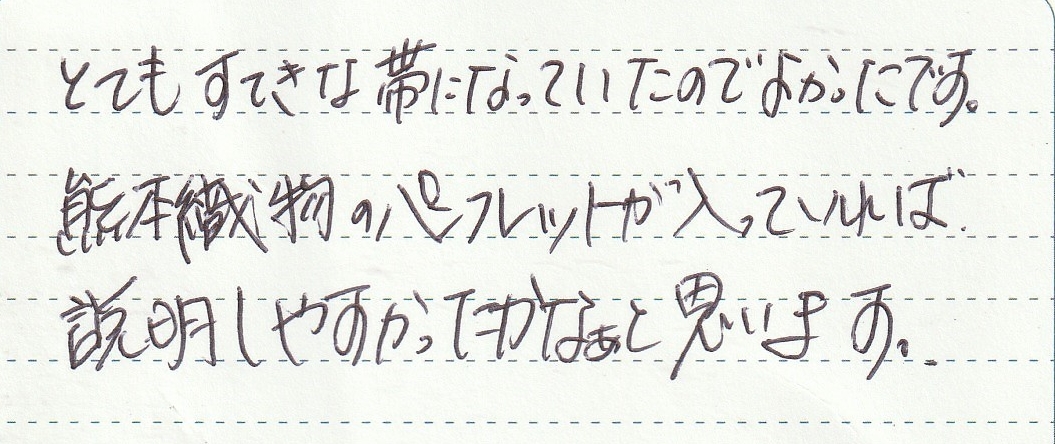 とてもすてきな帯になっていたのでよかったです。
熊本織物のパンフレットが入っていれば
説明しやすかったかなぁと思います。